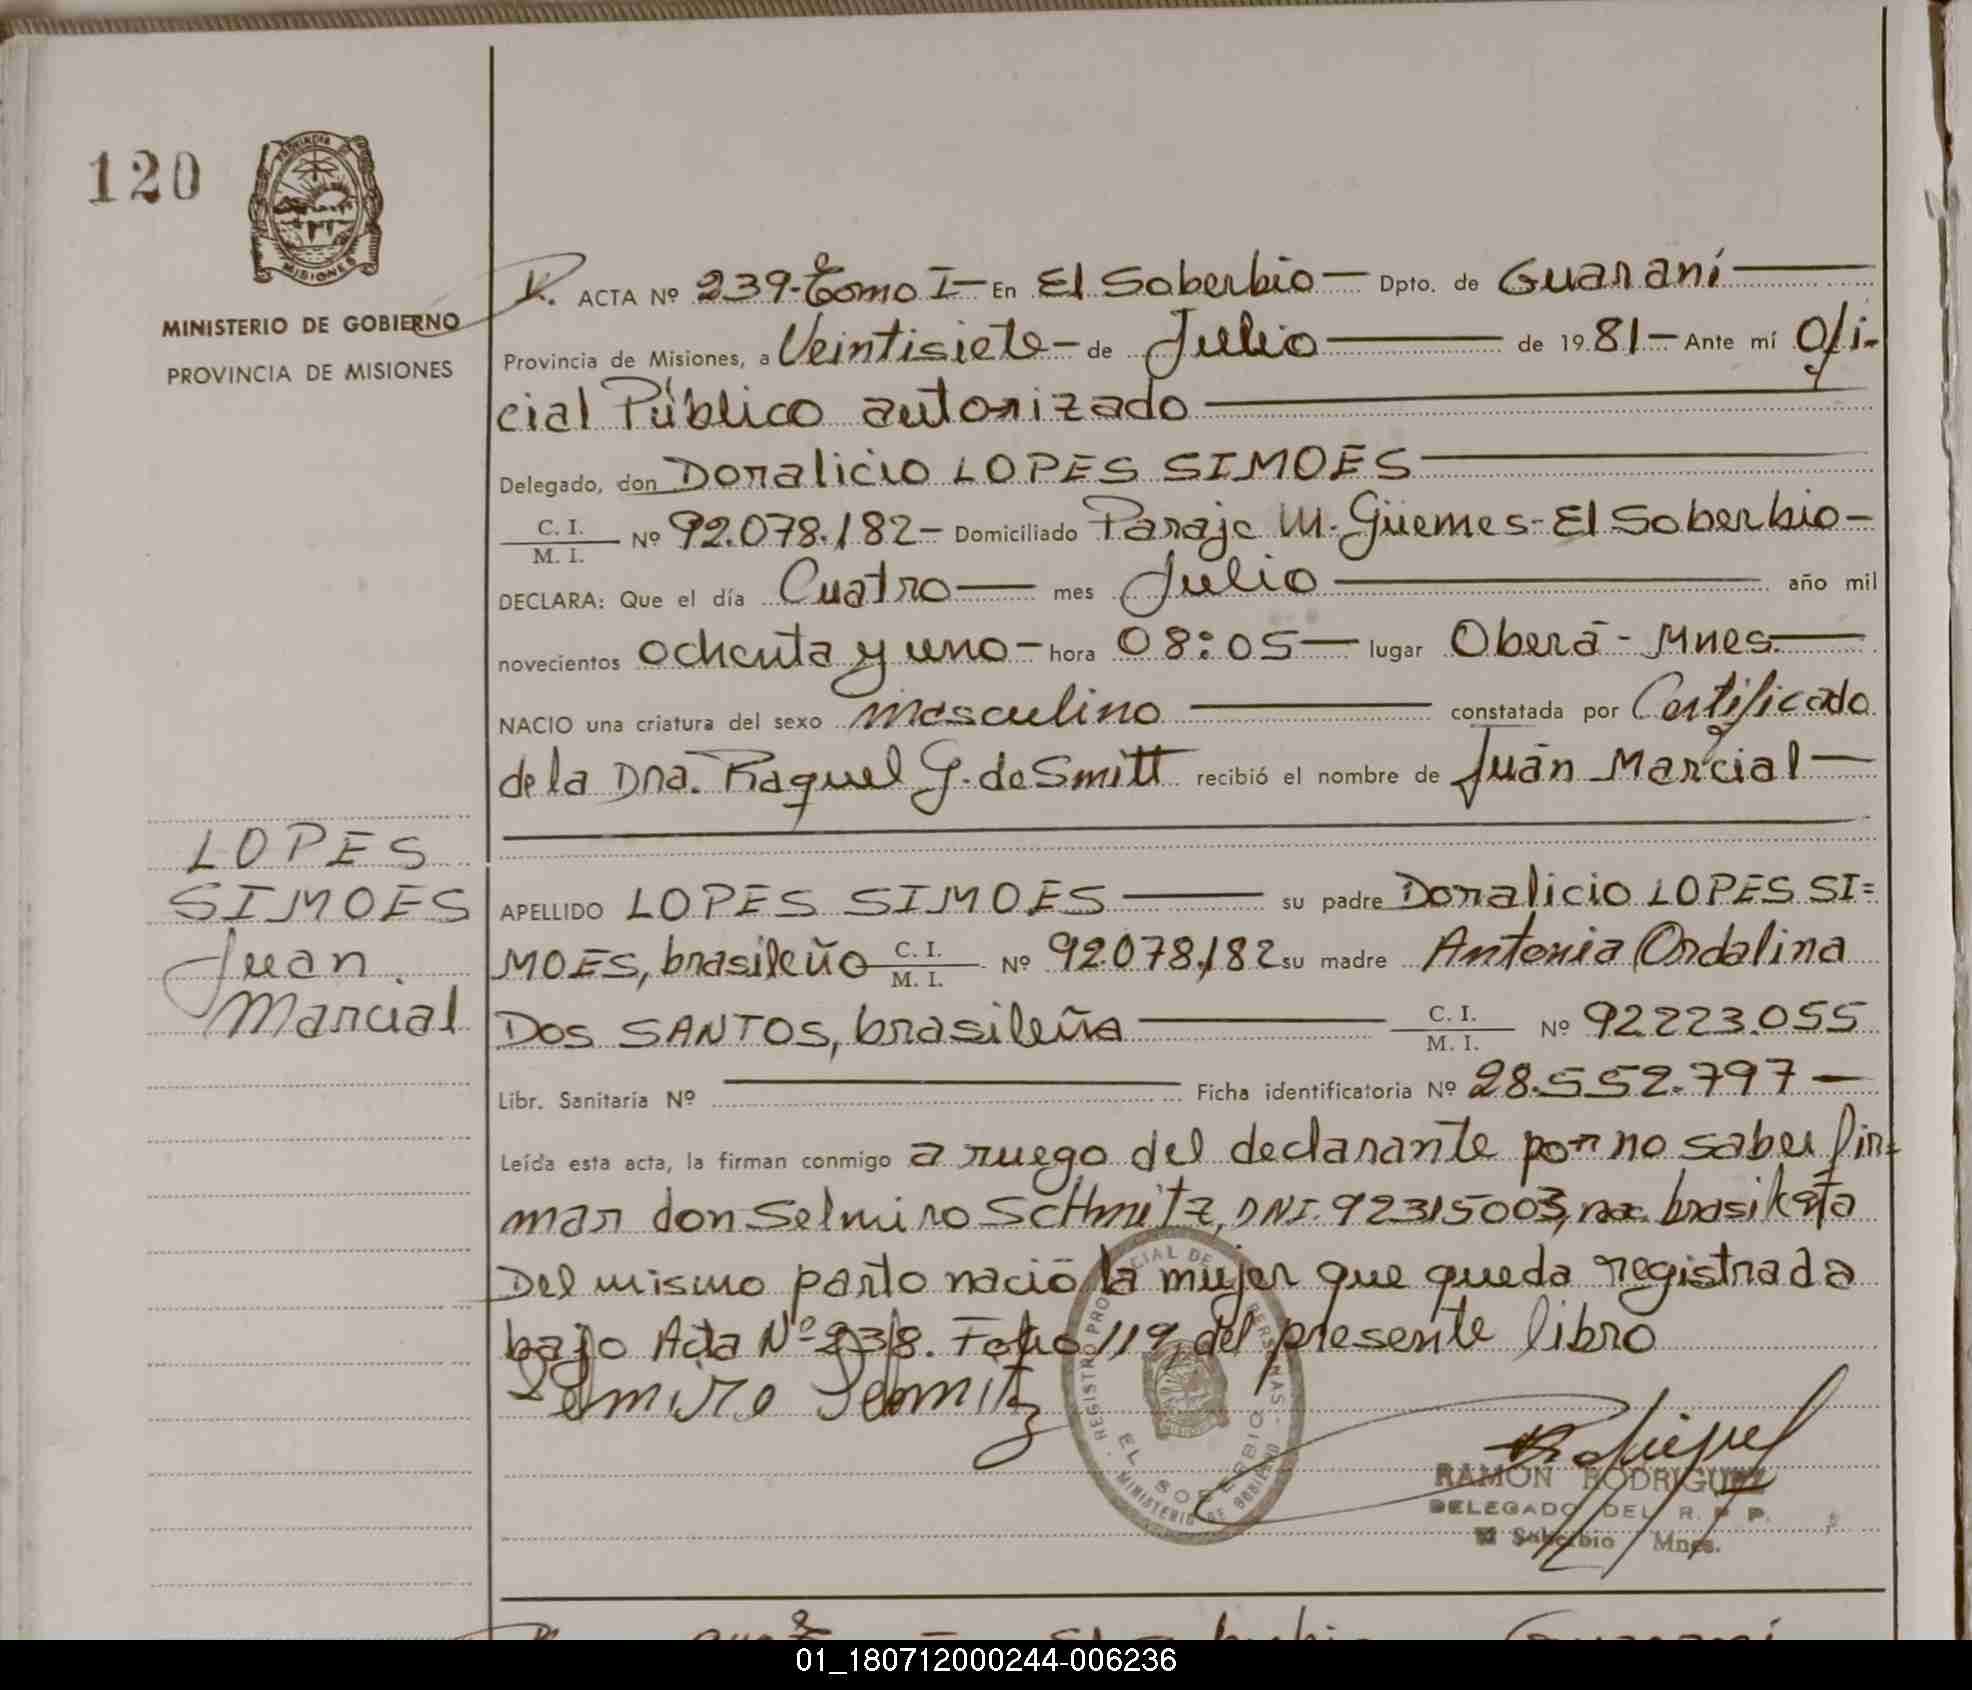 120
PROVINCIA DE
MISIONES
MINISTERIO DE GOBIERNO
PROVINCIA DE MISIONES
ACTA Nº 239-Tomo I- En El Soberbio- Dpto. de Guaraní
Provincia de Misiones, a Veintisiete- de Julio de 1981- Ante mí Ofi-
cial Público autorizado
Delegado, don Doralicio LOPES SIMOES
C. I.
M. I. Nº 92.078.182- Domiciliado Paraje M. Güemes- El Soberbio-
DECLARA: Que el día Cuatro- mes Julio año mil
novecientos ochenta y uno- hora 08:05- lugar Oberá- Mnes.
NACIO una criatura del sexo masculino constatada por Certificado
de la Dra. Raquel G. de Smitt recibió el nombre de Juán Marcial-
LOPES
SIMOES
Juan
Marcial
APELLIDO LOPES SIMOES su padre Doralicio LOPES SI=
MOES, brasileño C. I. M. I. Nº 92.078.182 su madre Antonia Ordalina
DOS SANTOS, brasileña C. I. M. I. Nº 92223.055
Libr. Sanitaria Nº Ficha identificatoria Nº 28.552.797-
Leída esta acta, la firman conmigo a ruego del declarante por no saber fir=
mar don Selmiro SCHmitz, DNI. 92315003, nac. brasileña
Del mismo parto nació la mujer que queda registrada
bajo Acta Nº 238. Folio 119, del presente libro
Selmiro Schmitz
REGISTRO PROVINCIAL DE PERSONAS
EL SOBERBIO
MINISTERIO DE GOBIERNO
RAMON RODRIGUEZ
DELEGADO DEL R. P. P.
El Soberbio Mnes.
01_180712000244-006236